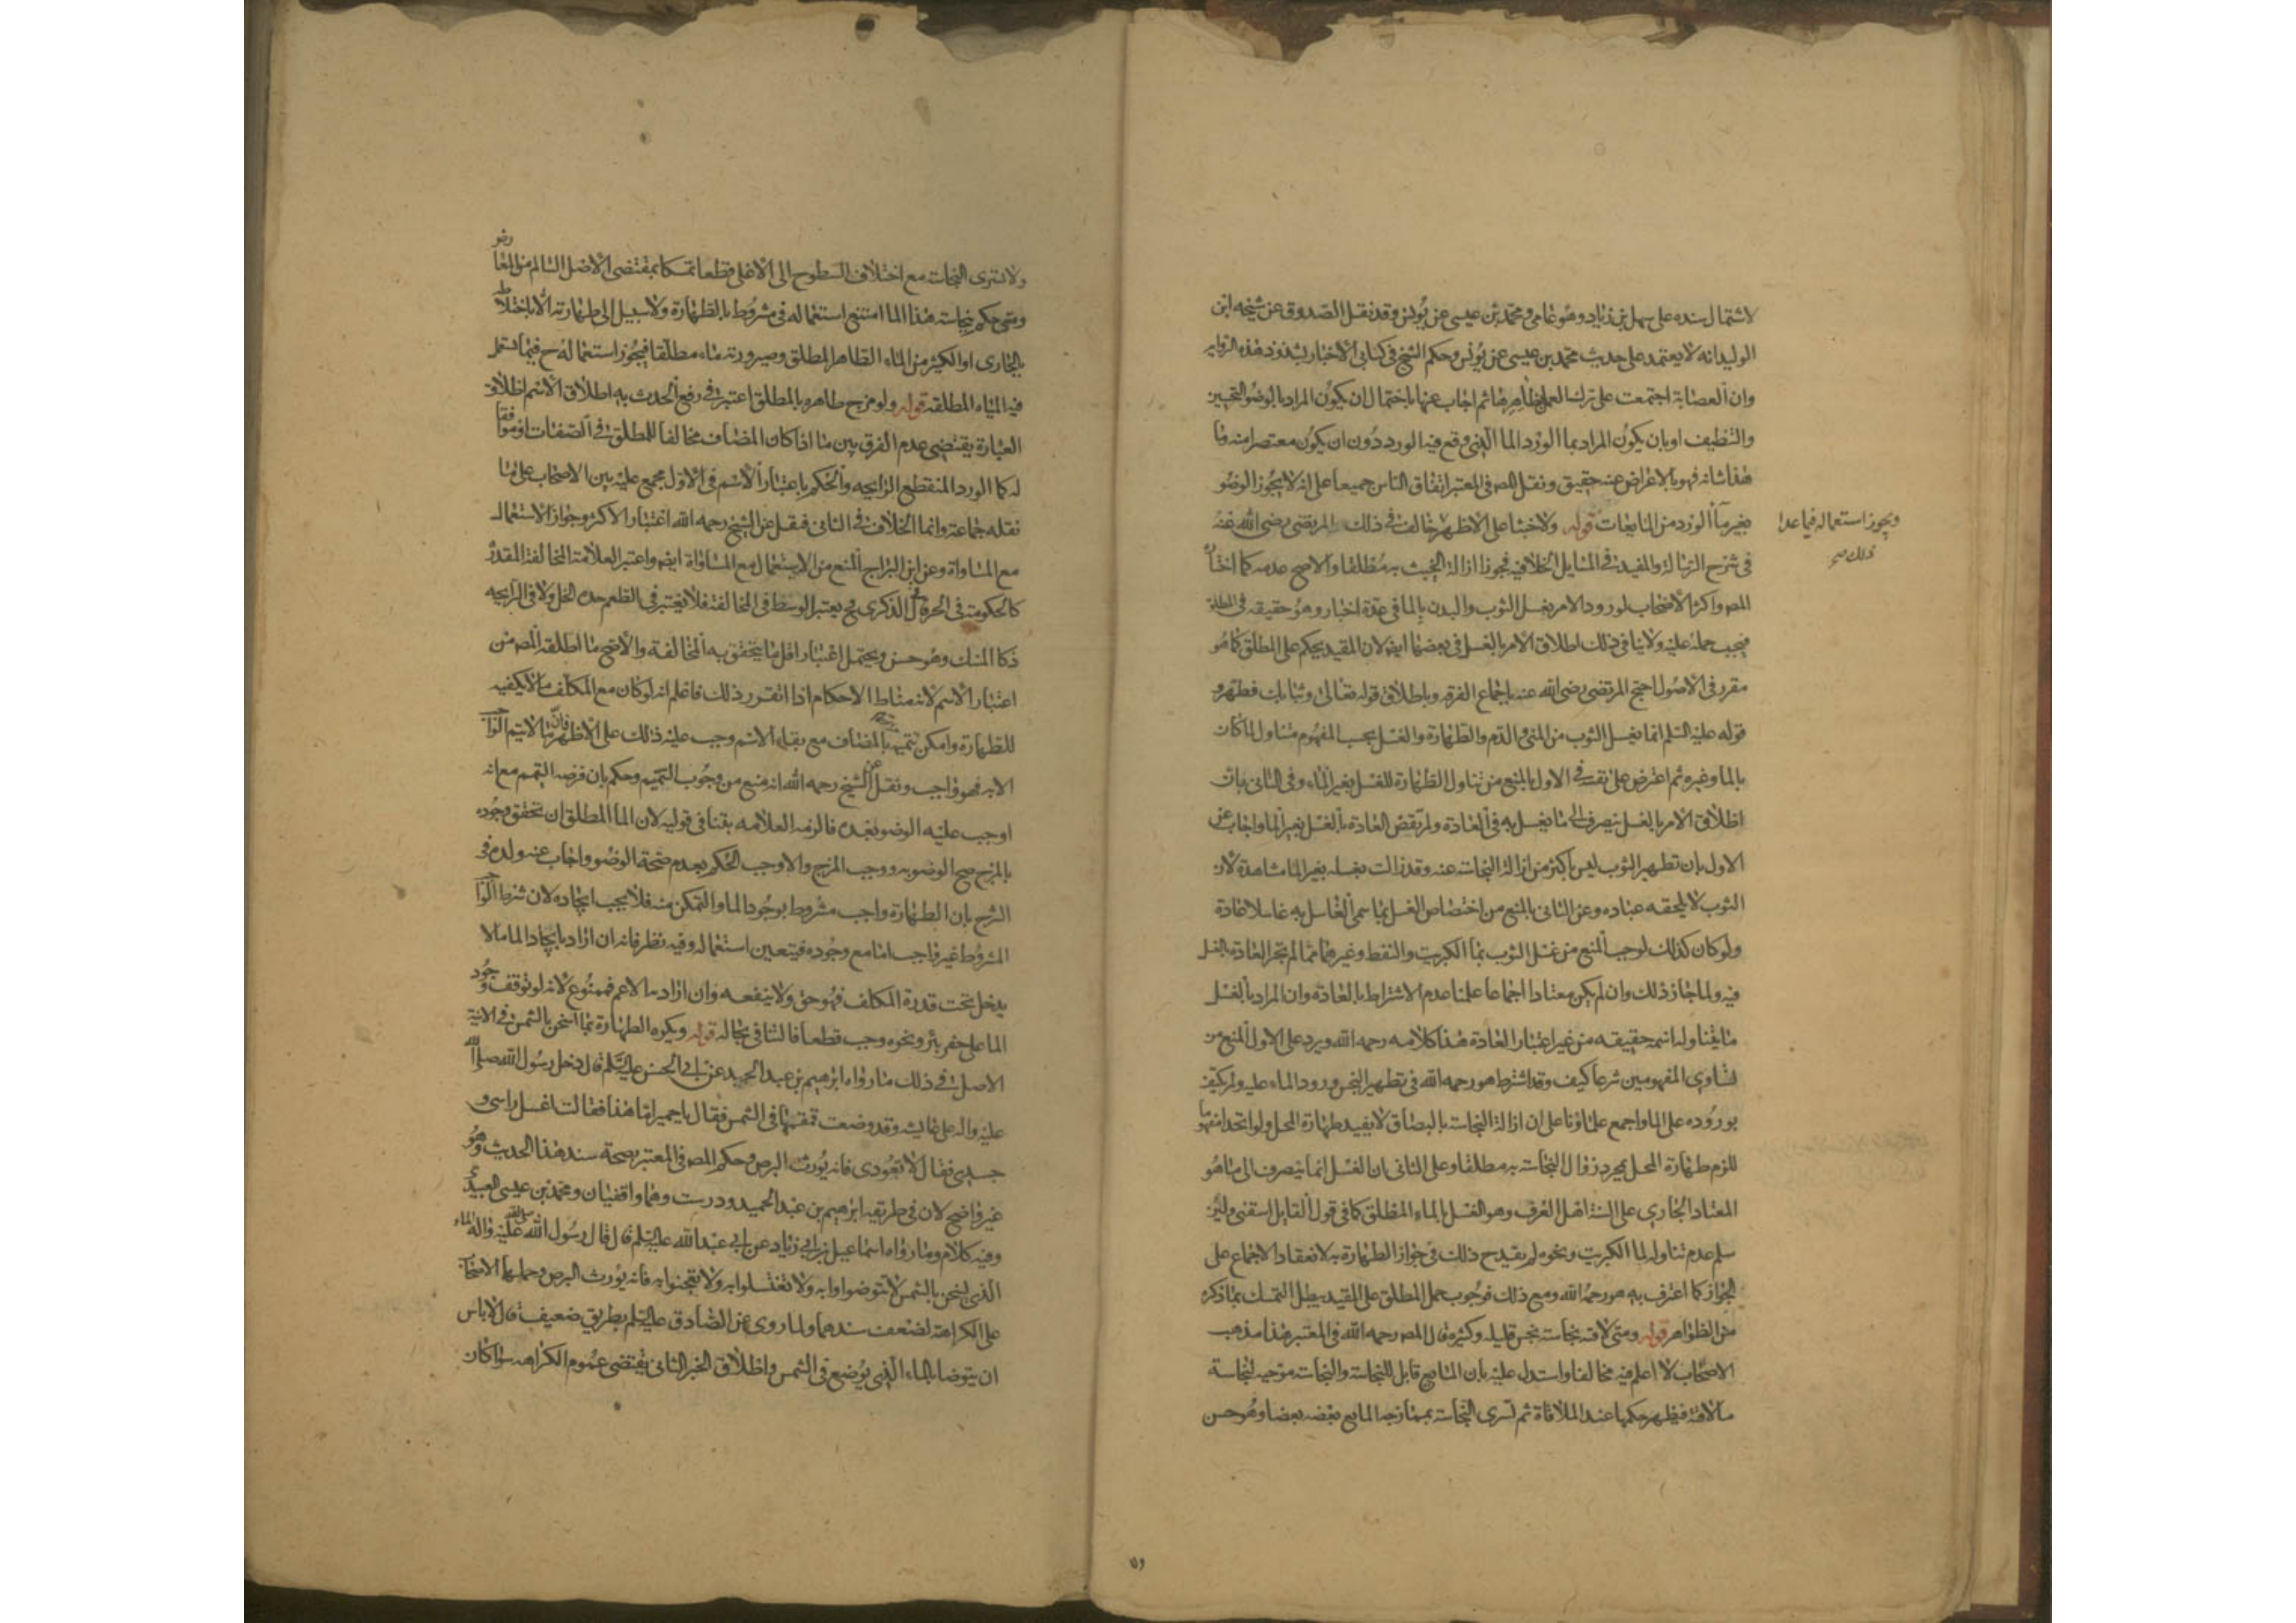 لاشتمال سنده على سهل بن زياد وهو عامي ومحمد بن عيسى عن يونس وقد نقل الصدوق عن شيخه ابن
الوليد انه لا يعتمد على حديث محمد بن عيسى عن يونس وحكم الشيخ في كتابي الاخبار بشذوذ هذه الرواية
وان العصابة اجتمعت على ترك العمل بظاهرها ثم اجاب عنها باحتمال ان يكون المراد بالوضوء التحسين
والتنظيف او بان يكون المراد بماء الورد الماء الذي وقع فيه الورد دون ان يكون معتصرا منه وما
هذا شانه فهو بالاعراض عنه حقيق ونقل المص في المعتبر اتفاق الناس جميعا على انه لا يجوز الوضوء
بغير ماء الورد من المايعات قوله ولا خبثا على الاظهر خالف في ذلك المرتضى رضي الله عنه
ويجوز استعماله فيما عدا
ذلك صح
في شرح الرسالة والمفيد في المسايل الخلافيه فجوزا ازالة الخبث به مطلقا والاصح عدمه كما اختاره
المص واكثر الاصحاب لورود الامر بغسل الثوب والبدن بالماء في عدة اخبار وهو حقيقه في المطلق
فيجب حمله عليه ولا ينافي ذلك اطلاق الامر بالغسل في بعضها ايض لان المقيد يحكم على المطلق كما هو
مقرر في الاصول احتج المرتضى رضي الله عنه باجماع الفرقه وباطلاق قوله تعالى وثيابك فطهر و
قوله عليه السلم انما يغسل الثوب من المني والدم والطهارة والغسل بحسب المفهوم متناول لما كان
بالماء وغيره ثم اعترض على نفسه في الاول بالمنع من تناول الطهارة للغسل بغير الماء وفي الثاني بان
اطلاق الامر بالغسل ينصرف الى ما يغسل به في العادة ولم تقض العادة بالغسل بغير الماء واجاب عن
الاول بان تطهير الثوب ليس باكثر من ازالة النجاسة عنه وقد زالت بغسله بغير الماء مشاهدة لان
الثوب لا يلحقه عباده وعن الثاني بالمنع من اختصاص الغسل بما سمي الغاسل به غاسلا عادة
ولو كان كذلك لوجب المنع من غسل الثوب بماء الكبريت والنفط وغيرهما مما لم تجر العادة بالغسل
فيه ولما جاز ذلك وان لم يكن معتادا اجماعا علمنا عدم الاشتراط بالعادة وان المراد بالغسل
ما يتناوله اسمه حقيقه من غير اعتبار العادة هذا كلامه رحمه الله ويرد على الاول المنع من
تساوي المفهومين شرعا كيف وقد اشترط هو رحمه الله في تطهير النجس ورود الماء عليه ولم يكتف
بوروده على الماء واجمع علماؤنا على ان ازالة النجاسة بالبصاق لا يفيد طهارة المحل ولو اتحد مفهوما
للزم طهارة المحل بمجرد زوال النجاسة به مطلقا وعلى الثاني ان الغسل انما ينصرف الى ما هو
المعتاد الجاري على السنة اهل العرف وهو الغسل بالماء المطلق كما في قول القايل اسقني ولئن
سلم عدم تناوله لماء الكبريت ونحوه لم يقدح ذلك في جواز الطهارة به لانعقاد الاجماع على
الجواز كما اعترف به هو رحمه الله ومع ذلك فوجوب حمل المطلق على المقيد يبطل التمسك بما ذكره
من الظواهر قوله ومتى لاقته نجاسة نجس قليله وكثيره قال المص رحمه الله في المعتبر هذا مذهب
الاصحاب لا اعلم فيه مخالفا واستدل عليه بان المايع قابل للنجاسة والنجاسة موجبه لنجاسة
ما لاقته فيظهر حكمها عند الملاقاة ثم تسرى النجاسة بممازجه المايع بعضه بعضا وهو حسن
٧٦
ولا تسرى النجاسة مع اختلاف السطوح الى الاعلى قطعا تمسكا بمقتضى الاصل السالم من المعارض و
ومتى حكم بنجاسة هذا الماء امتنع استعماله في مشروط بالطهارة ولا سبيل الى طهارته الا باختلاطه
بالجاري او الكثير من الماء الطاهر المطلق وصيرورته ماء مطلقا فيجوز استعماله ح فيما يستعمل
فيه المياه المطلقة قوله ولو مزج طاهره بالمطلق اعتبر في رفع الحدث به اطلاق الاسم اطلاق
العبارة يقتضي عدم الفرق بين ما اذا كان المضاف مخالفا للمطلق في الصفات او موافقا
له كماء الورد المنقطع الرايحه والحكم باعتبار الاسم في الاول مجمع عليه بين الاصحاب على ما
نقله جماعة وانما الخلاف في الثاني فنقل عن الشيخ رحمه الله اعتبار الاكثر وجواز الاستعمال
مع المساواة وعن ابن البراج المنع من الاستعمال مع المساواة ايض واعتبر العلامة المخالفة المقدرة
كالحكومة في الحر قال في الذكرى فح يعتبر الوسط في المخالفة فلا يعتبر في الطعم حدة الخل ولا في الرايحه
ذكاء المسك وهو حسن ويحتمل اعتبار اقل ما يتحقق به المخالفة والاصح ما اطلقه المص من
اعتبار الاسم لانه مناط الاحكام اذا تقرر ذلك فاعلم انه لو كان مع المكلف ما لا يكفيه
للطهارة وامكن تتميمه بالمضاف مع بقاء الاسم وجب عليه ذلك على الاظهر فان ما لا يتم الواجب
الا به فهو واجب ونقل عن الشيخ رحمه الله انه منع من وجوب التتميم وحكم بان فرضه التيمم مع انه
اوجب عليه الوضوء بعده فالزمه العلامه بتنافي قوليه لان الماء المطلق ان تحقق وجوده
بالمزج صح الوضوء به ووجب المزج والا وجب الحكم بعدم صحة الوضوء واجاب عنه ولده في
الشرح بان الطهارة واجب مشروط بوجود الماء والتمكن منه فلا يجب ايجاده لان شرط الواجب
المشروط غير واجب اما مع وجوده فيتعين استعماله وفيه نظر فانه ان اراد بايجاد الماء ما لا
يدخل تحت قدرة المكلف فهو حق ولا ينفعه وان اراد به الاعم فممنوع لانه لو توقف وجود
الماء على حفر بئر ونحوه وجب قطعا فالتنافي بحاله قوله ويكره الطهارة بماء اسخن بالشمس في الانية
الاصل في ذلك ما رواه ابرهيم بن عبد الحميد عن ابي الحسن عليه السلم قال دخل رسول الله صلى الله
عليه واله على عايشه وقد وضعت قمقمتها في الشمس فقال يا حميرا ما هذا فقالت اغسل راسي و
جسدي فقال لا تعودي فانه يورث البرص وحكم المص في المعتبر بصحة سند هذا الحديث وهو
غير واضح لان في طريقه ابرهيم بن عبد الحميد ودرست وهما واقفيان ومحمد بن عيسى العبيدي
وفيه كلام وما رواه اسماعيل بن ابي زياد عن ابي عبد الله عليه السلم قال قال رسول الله صلى الله عليه واله الماء
الذي يسخن بالشمس لا تتوضوا به ولا تغتسلوا به ولا تعجنوا به فانه يورث البرص وحملها الاصحاب
على الكراهة لضعف سندهما ولما روي عن الصادق عليه السلم بطريق ضعيف قال لا باس
ان يتوضا بالماء الذي يوضع في الشمس واطلاق الخبر الثاني يقتضي عموم الكراهه سواء كان